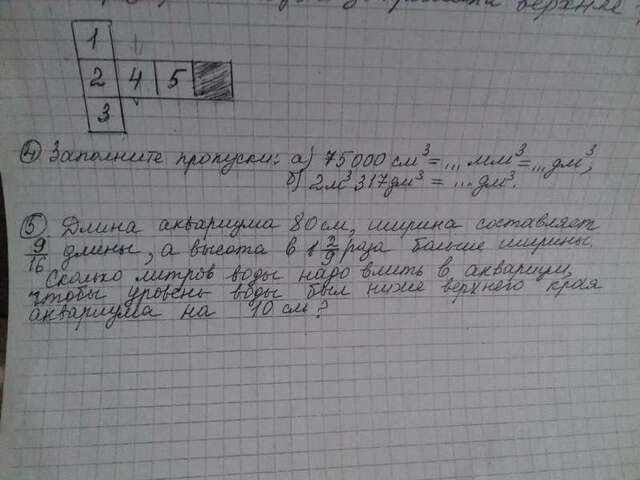 верхние
1
2 4 5
3
4 Заполните пропуски: а) 75000 см³ = ... мм³ = ... дм³,
б) 2м³ 317дм³ = ... дм³.
5 Длина аквариума 80 см, ширина составляет
9/16 длины, а высота в 1 2/9 раза больше ширины.
Сколько литров воды надо влить в аквариум,
чтобы уровень воды был ниже верхнего края
аквариума на 10 см?